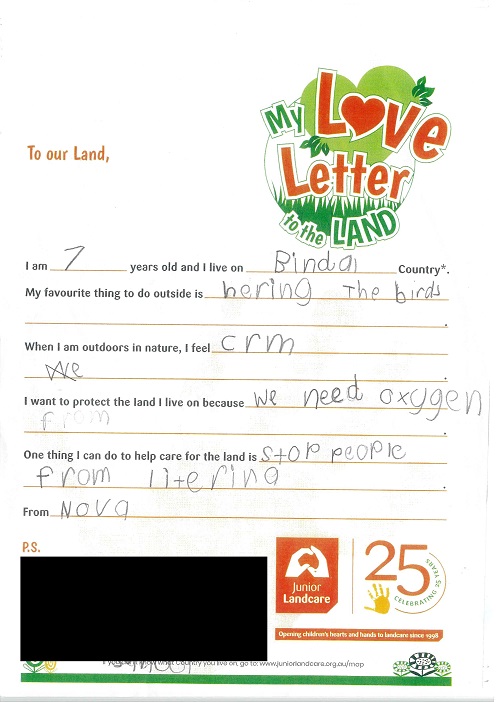 My Love
Letter
to the LAND
To our Land,
I am 7 years old and I live on Bindal Country*.
My favourite thing to do outside is hering The birds
.
When I am outdoors in nature, I feel crm
We .
I want to protect the land I live on because we need oxygen
from .
One thing I can do to help care for the land is stop people
from litering .
From Nova
P.S.
Junior
Landcare
25
CELEBRATING 25 YEARS
Opening children's hearts and hands to landcare since 1998
know what Country you live on, go to: www.juniorlandcare.org.au/map